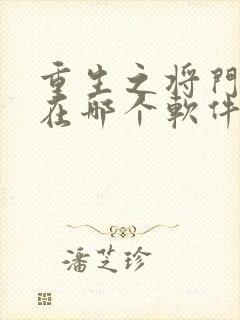 重生之将門
在哪个軟件
潘芝珍